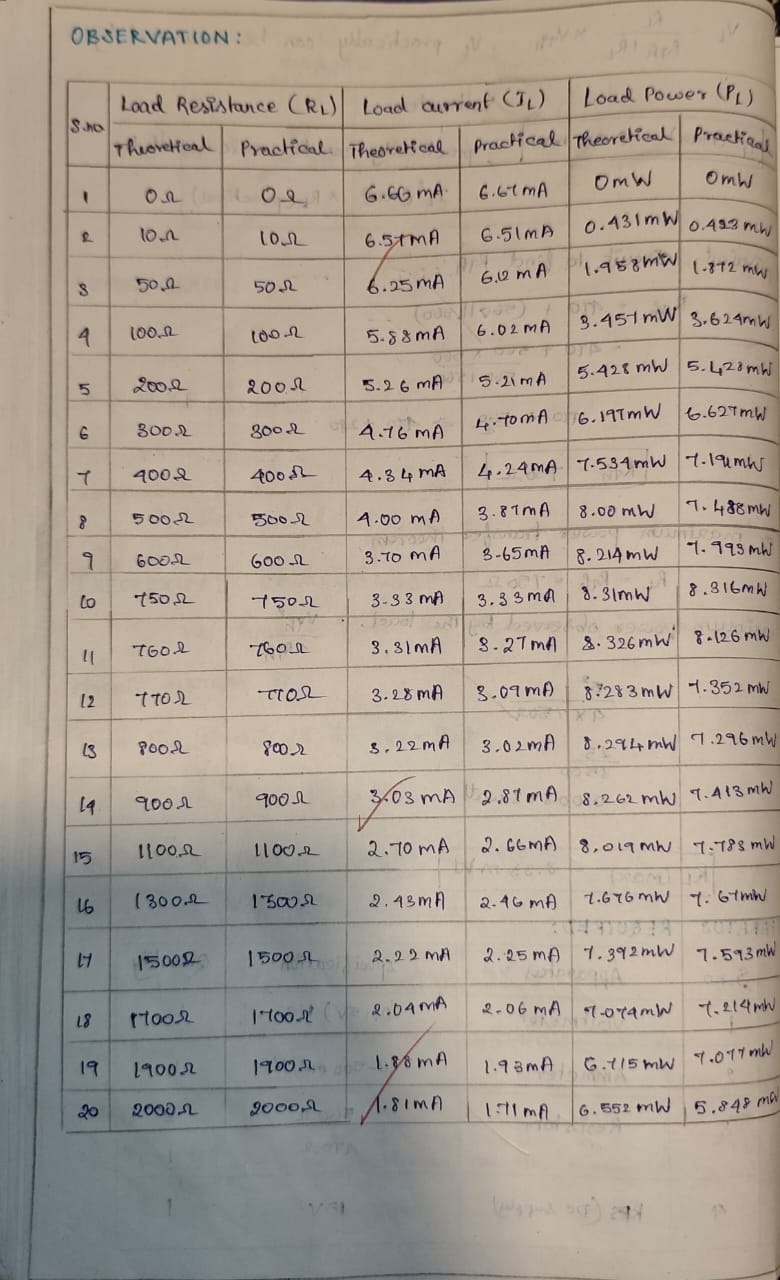 OBSERVATION:
S.no | Load Resistance (RL) | Load current (IL) | Load Power (PL)
Theoretical | Practical | Theoretical | Practical | Theoretical | Practical
1 | 0Ω | 0Ω | 6.66 mA | 6.67 mA | 0mW | 0mW
2 | 10Ω | 10Ω | 6.57mA | 6.51mA | 0.431mW | 0.423 mW
3 | 50Ω | 50Ω | 6.25mA | 6.12 mA | 1.958mW | 1.872 mW
4 | 100Ω | 100Ω | 5.88mA | 6.02mA | 3.457mW | 3.624mW
5 | 200Ω | 200Ω | 5.26 mA | 5.21mA | 5.428 mW | 5.428mW
6 | 300Ω | 300Ω | 4.76 mA | 4.70mA | 6.197mW | 6.627mW
7 | 400Ω | 400Ω | 4.34 mA | 4.24mA | 7.534mW | 7.191mW
8 | 500Ω | 500Ω | 4.00 mA | 3.87mA | 8.00 mW | 7.488mW
9 | 600Ω | 600Ω | 3.70 mA | 3.65mA | 8.214mW | 7.993mW
10 | 750Ω | 750Ω | 3.33 mA | 3.33mA | 8.31mW | 8.316mW
11 | 760Ω | 760Ω | 3.31mA | 3.27mA | 8.326mW | 8.126mW
12 | 770Ω | 770Ω | 3.28mA | 3.09mA | 8.283mW | 7.352mW
13 | 800Ω | 800Ω | 3.22mA | 3.02mA | 8.294mW | 7.296mW
14 | 900Ω | 900Ω | 3.03 mA | 2.87mA | 8.262 mW | 7.413mW
15 | 1100Ω | 1100Ω | 2.70 mA | 2.66mA | 8.019mW | 7.783mW
16 | 1300Ω | 1300Ω | 2.43mA | 2.46 mA | 7.676mW | 7.67mW
17 | 1500Ω | 1500Ω | 2.22 mA | 2.25mA | 7.392mW | 7.593mW
18 | 1700Ω | 1700Ω | 2.04mA | 2.06 mA | 7.074mW | 7.214mW
19 | 1900Ω | 1900Ω | 1.88mA | 1.93mA | 6.715mW | 7.077mW
20 | 2000Ω | 2000Ω | 1.81mA | 1.71mA | 6.552 mW | 5.848 mW